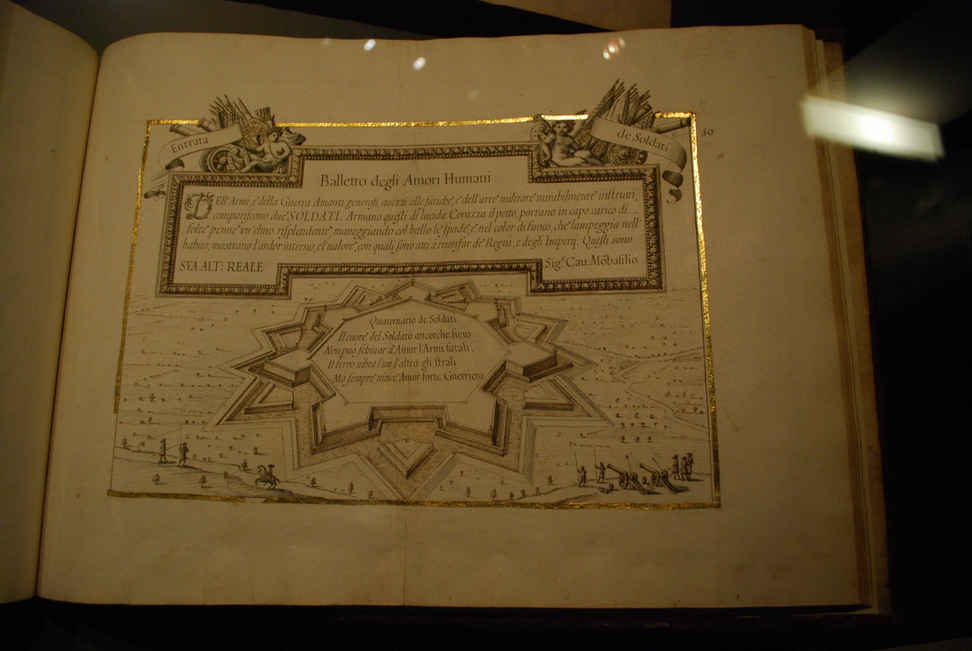 50
Entrata
de Soldati
Balletto degli Amori Humani
Dell'Armi, e della Guerra Amanti generosi, auezzi alle fatiche, e dell'arte militare mirabilmente istrutti,
compariscono due SOLDATI. Armano questi di lucida Corazza il petto, portano in capo carico di
folte penne vn elmo risplendente, maneggiando col ballo le spade, e nel color di fuoco, che lampeggia nell'
habito, mostrano l'ardor interno, e'l ualore, con quali sono atti a trionfar de' Regni, e degli Imperij. Questi sono
SVA ALT: REALE
Sigr. Cau. Mõbasilio.
Quaternario de Soldati
Il cuore del Soldato ancorche fiero
Non può schiuar d'Amor l'Armi fatali,
Il ferro uibra l'un, l'altro gli strali
Ma sempre uince Amor forte Guerriero